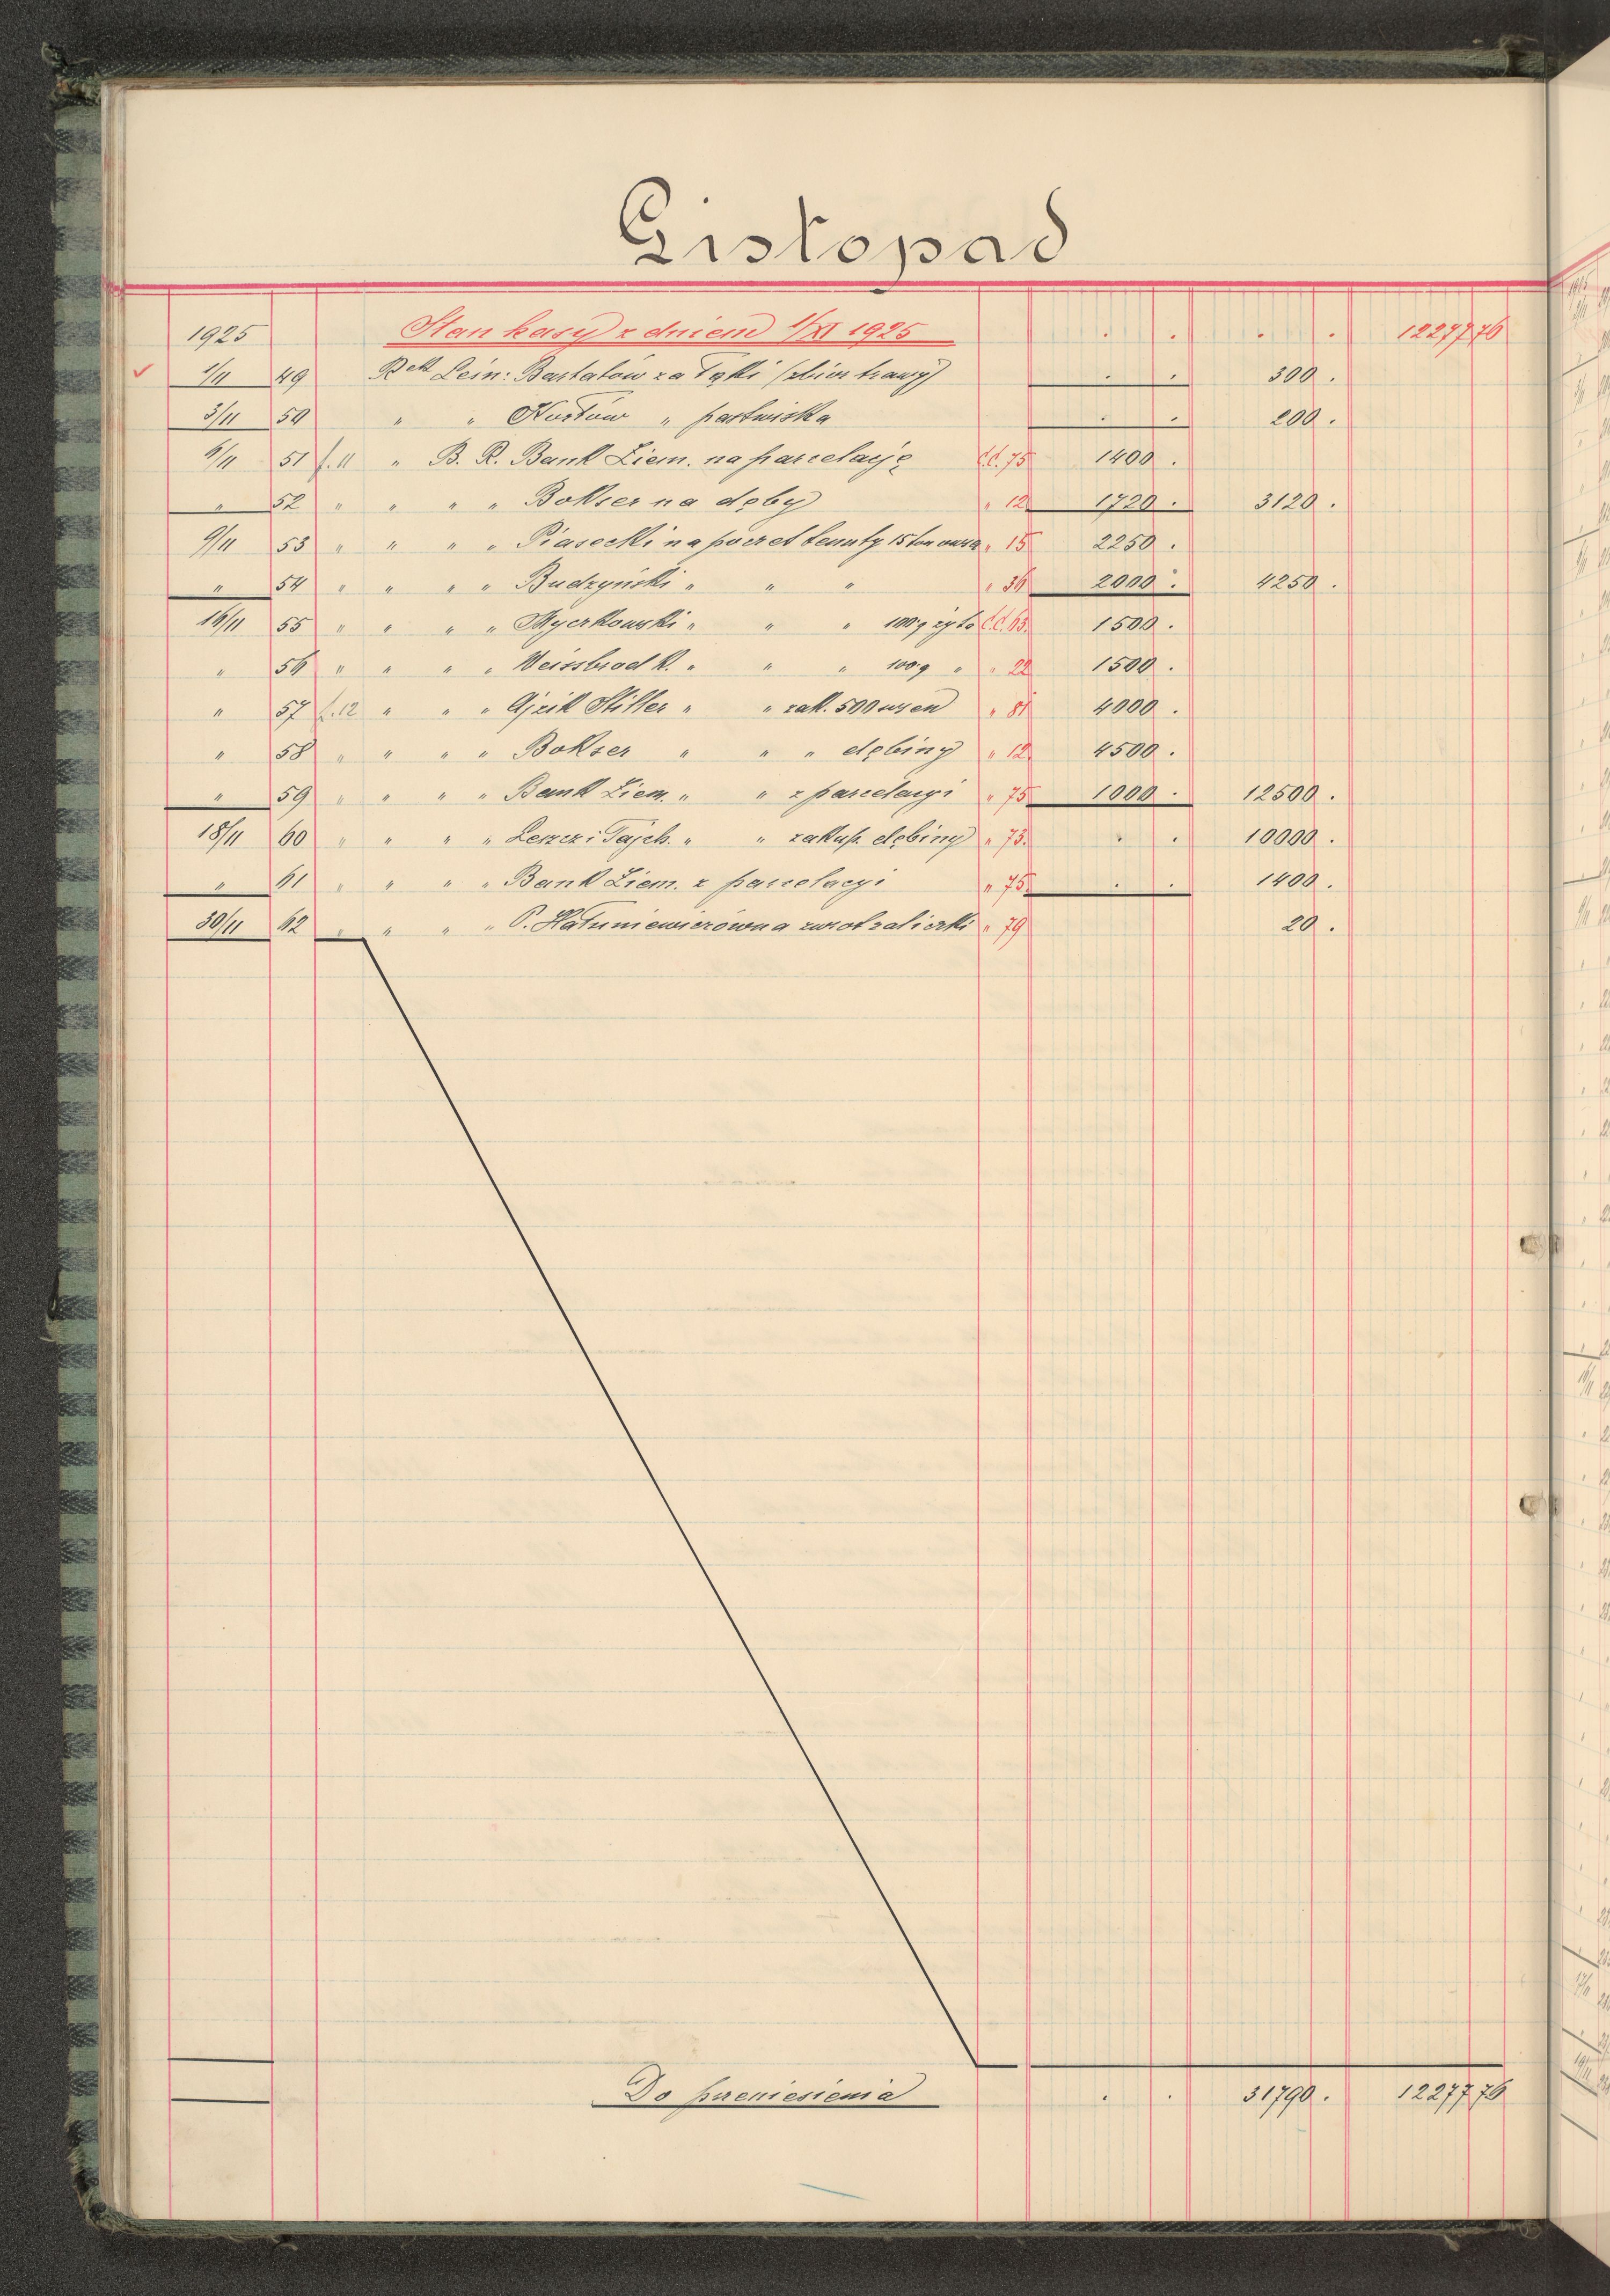 Listopad
1925 Stan kasy z dniem 1/XI 1925 . . . . 12277 76
1/11 49 Rek Leśn: Bartatów za łąki (zbiór trawy) . . 300 .
3/11 50 " " " pastwiska . . 200 .
6/11 51 f. 11 " B. R. Bank Ziem. na parcelację C.C. 75 1400 .
" 52 " " " " Bokser na dęby " 12 1720 . 3120 .
9/11 53 " " " " Piasecki na poczet tenuty 15 ton owsa " 15 2250 .
" 54 " " " " Budzyński " " " " 36 2000 . 4250 .
16/11 55 " " " " " " " 100 q żyto C.C. 63. 1500 .
" 56 " " " " Weissbrod K. " " " 100 q " " 22 1500 .
" 57 f. 12 " " " Ajzik Hiller " " zak. 500 " 81 4000 .
" 58 " " " " Bokser " " " dębiny " 12 4500 .
" 59 " " " " Bank Ziem. " " z parcelacyi " 75 1000 . 12500 .
18/11 60 " " " " Leszcz i Tajch. " " zakup. dębiny " 73. . . 10000 .
" 61 " " " " Bank Ziem. z parcelacyi " 75. . . 1400 .
30/11 62 " " " " P. Hatuniewiczówna zwrot zaliczki " 79 20 .
Do przeniesienia . . 31790 . 12277 76